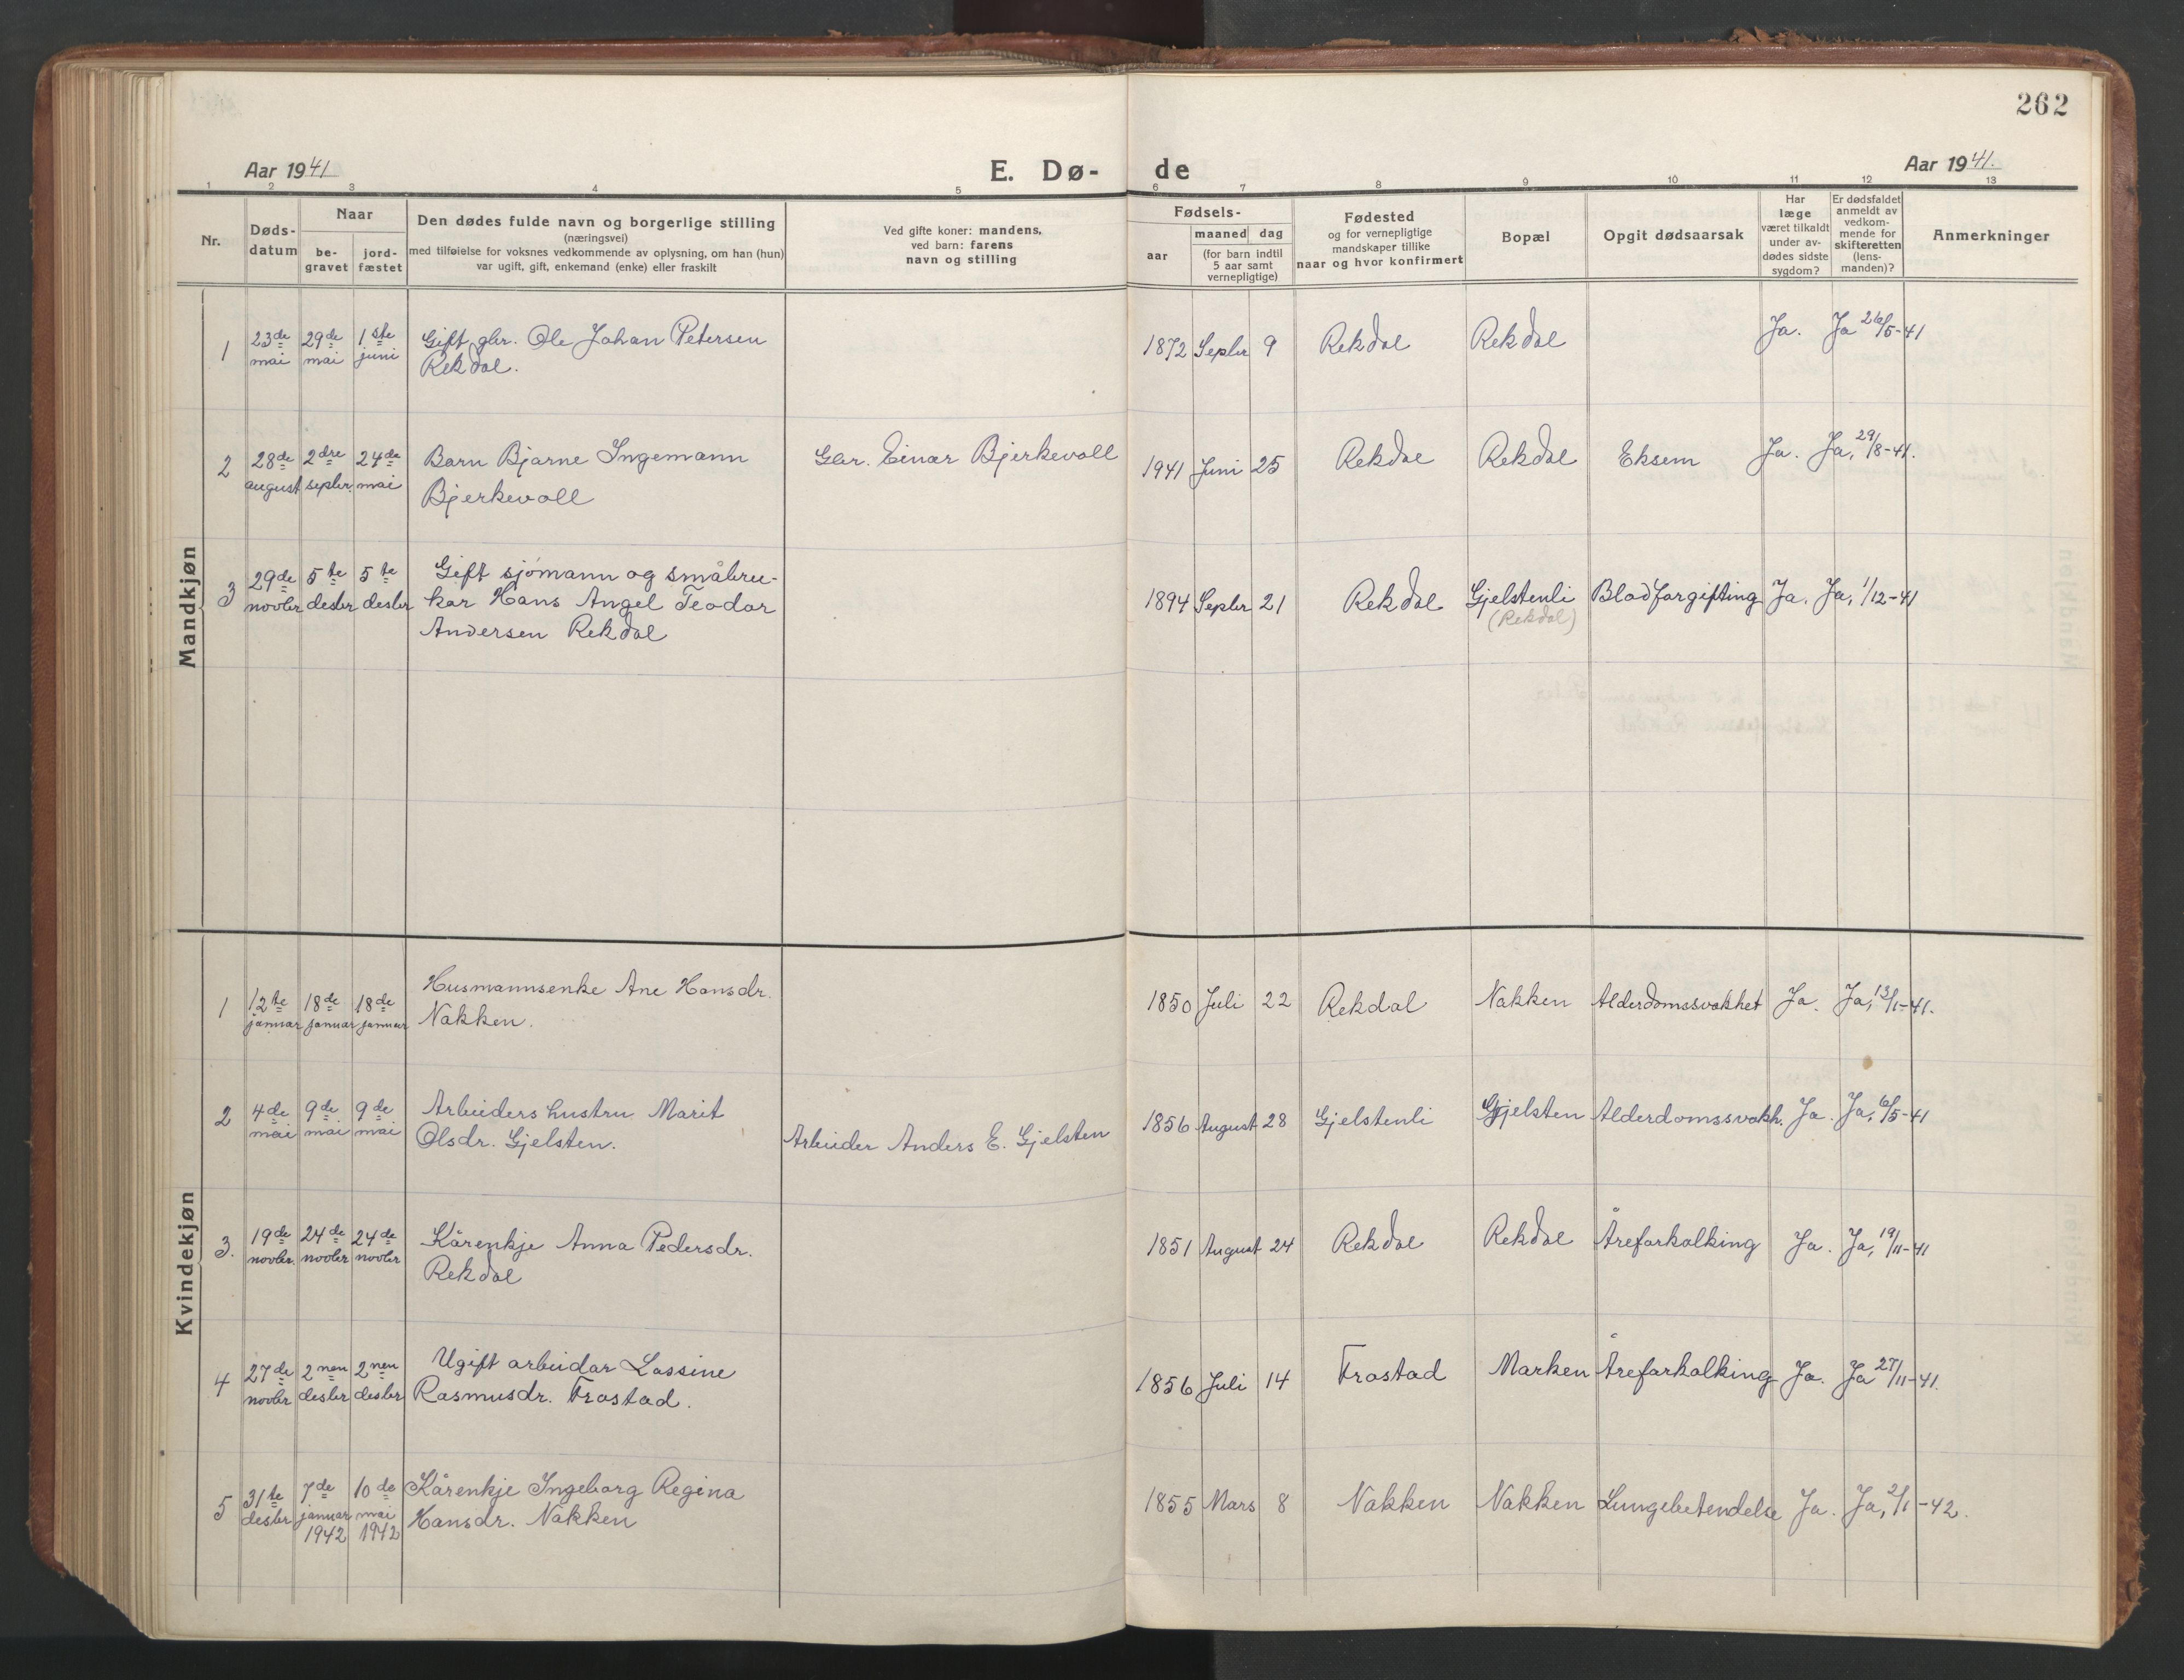 262
Aar 1941
E. Dø-
de
Aar 1941.
1 2 3 4 5 6 7 8 9 10 11 12 13
Nr.
Døds-
datum
Naar
be-
gravet
jord-
fæstet
Den dødes fulde navn og borgerlige stilling
(næringsvei)
med tilføielse for voksnes vedkommende av oplysning, om han (hun)
var ugift, gift, enkemand (enke) eller fraskilt
Ved gifte koner: mandens,
ved barn: farens
navn og stilling
Fødsels-
aar
maaned dag
(for barn indtil
5 aar samt
vernepligtige)
Fødested
og for vernepligtige
mandskaper tillike
naar og hvor konfirmert
Bopæl
Opgit dødsaarsak
Har
læge
været tilkaldt
under av-
dødes sidste
sygdom?
Er dødsfaldet
anmeldt av
vedkom-
mende for
skifteretten
(lens-
manden)?
Anmerkninger
Mandkjøn
1 23de mai 29de mai 1ste juni Gift gbr. Ole Johan Petersen
Rekdal.
1872 Septbr 9 Rekdal Rekdal Ja. Ja 26/5-41
2 28de august 2dre septbr. 24de mai Barn Bjarne Ingemann
Bjerkevoll
Gbr. Einar Bjerkevoll 1941 Juni 25 Rekdal Rekdal Eksem Ja. Ja, 29/8-41.
3 29de novbr 5te desbr 5te desbr Gift sjømann og småbru-
kar Hans Angel Teodor
Andersen Rekdal
1894 Septbr 21 Rekdal Gjelstenli
(Rekdal)
Blodforgifting Ja. Ja, 1/12-41
Kvindekjøn
1 12te januar 18de januar 18de januar Husmannsenke Ane Hansdr.
Nakken.
1850 Juli 22 Rekdal Nakken Alderdomssvakhet Ja. Ja, 13/1-41.
2 4de mai 9de mai 9de mai Arbeiders hustru Marit
Olsdr. Gjelsten.
Arbeider Anders E. Gjelsten 1856 August 28 Gjelstenli Gjelsten Alderdomssvakh. Ja. Ja, 6/5-41
3. 19de novbr. 24de novbr 24de novbr Kårenkje Anna Pedersdr.
Rekdal
1851 August 24 Rekdal Rekdal Åreforkalking Ja. Ja, 19/11-41
4 27de novbr 2nen desbr 2nen desbr Ugift arbeidar Lassine
Rasmusdr. Frostad.
1856 Juli 14 Frostad Marken Åreforkalking Ja. Ja 27/11-41.
5 31te desbr 7de januar 1942 10de mai 1942 Kårenkje Ingeborg Regina
Hansdr. Nakken
1855 Mars 8 Nakken Nakken Lungebetendelse Ja. Ja, 2/1-42.